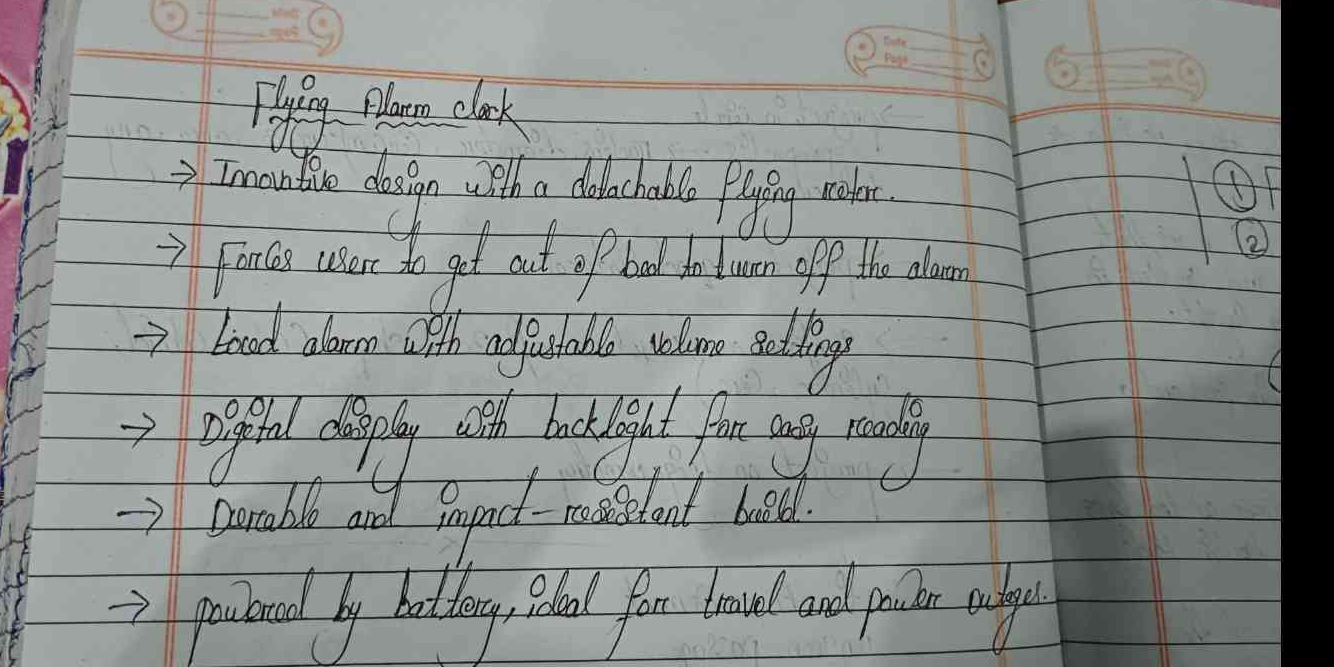 Date
Page
Flying Alarm clock
→ Innovative design with a detachable flying rotor.
→ Forces user to get out of bed to turn off the alarm
→ Loud alarm with adjustable volume settings
→ Digital display with backlight for easy reading
→ Durable and impact-resistant build.
→ powered by battery, ideal for travel and power outages.
① F
②